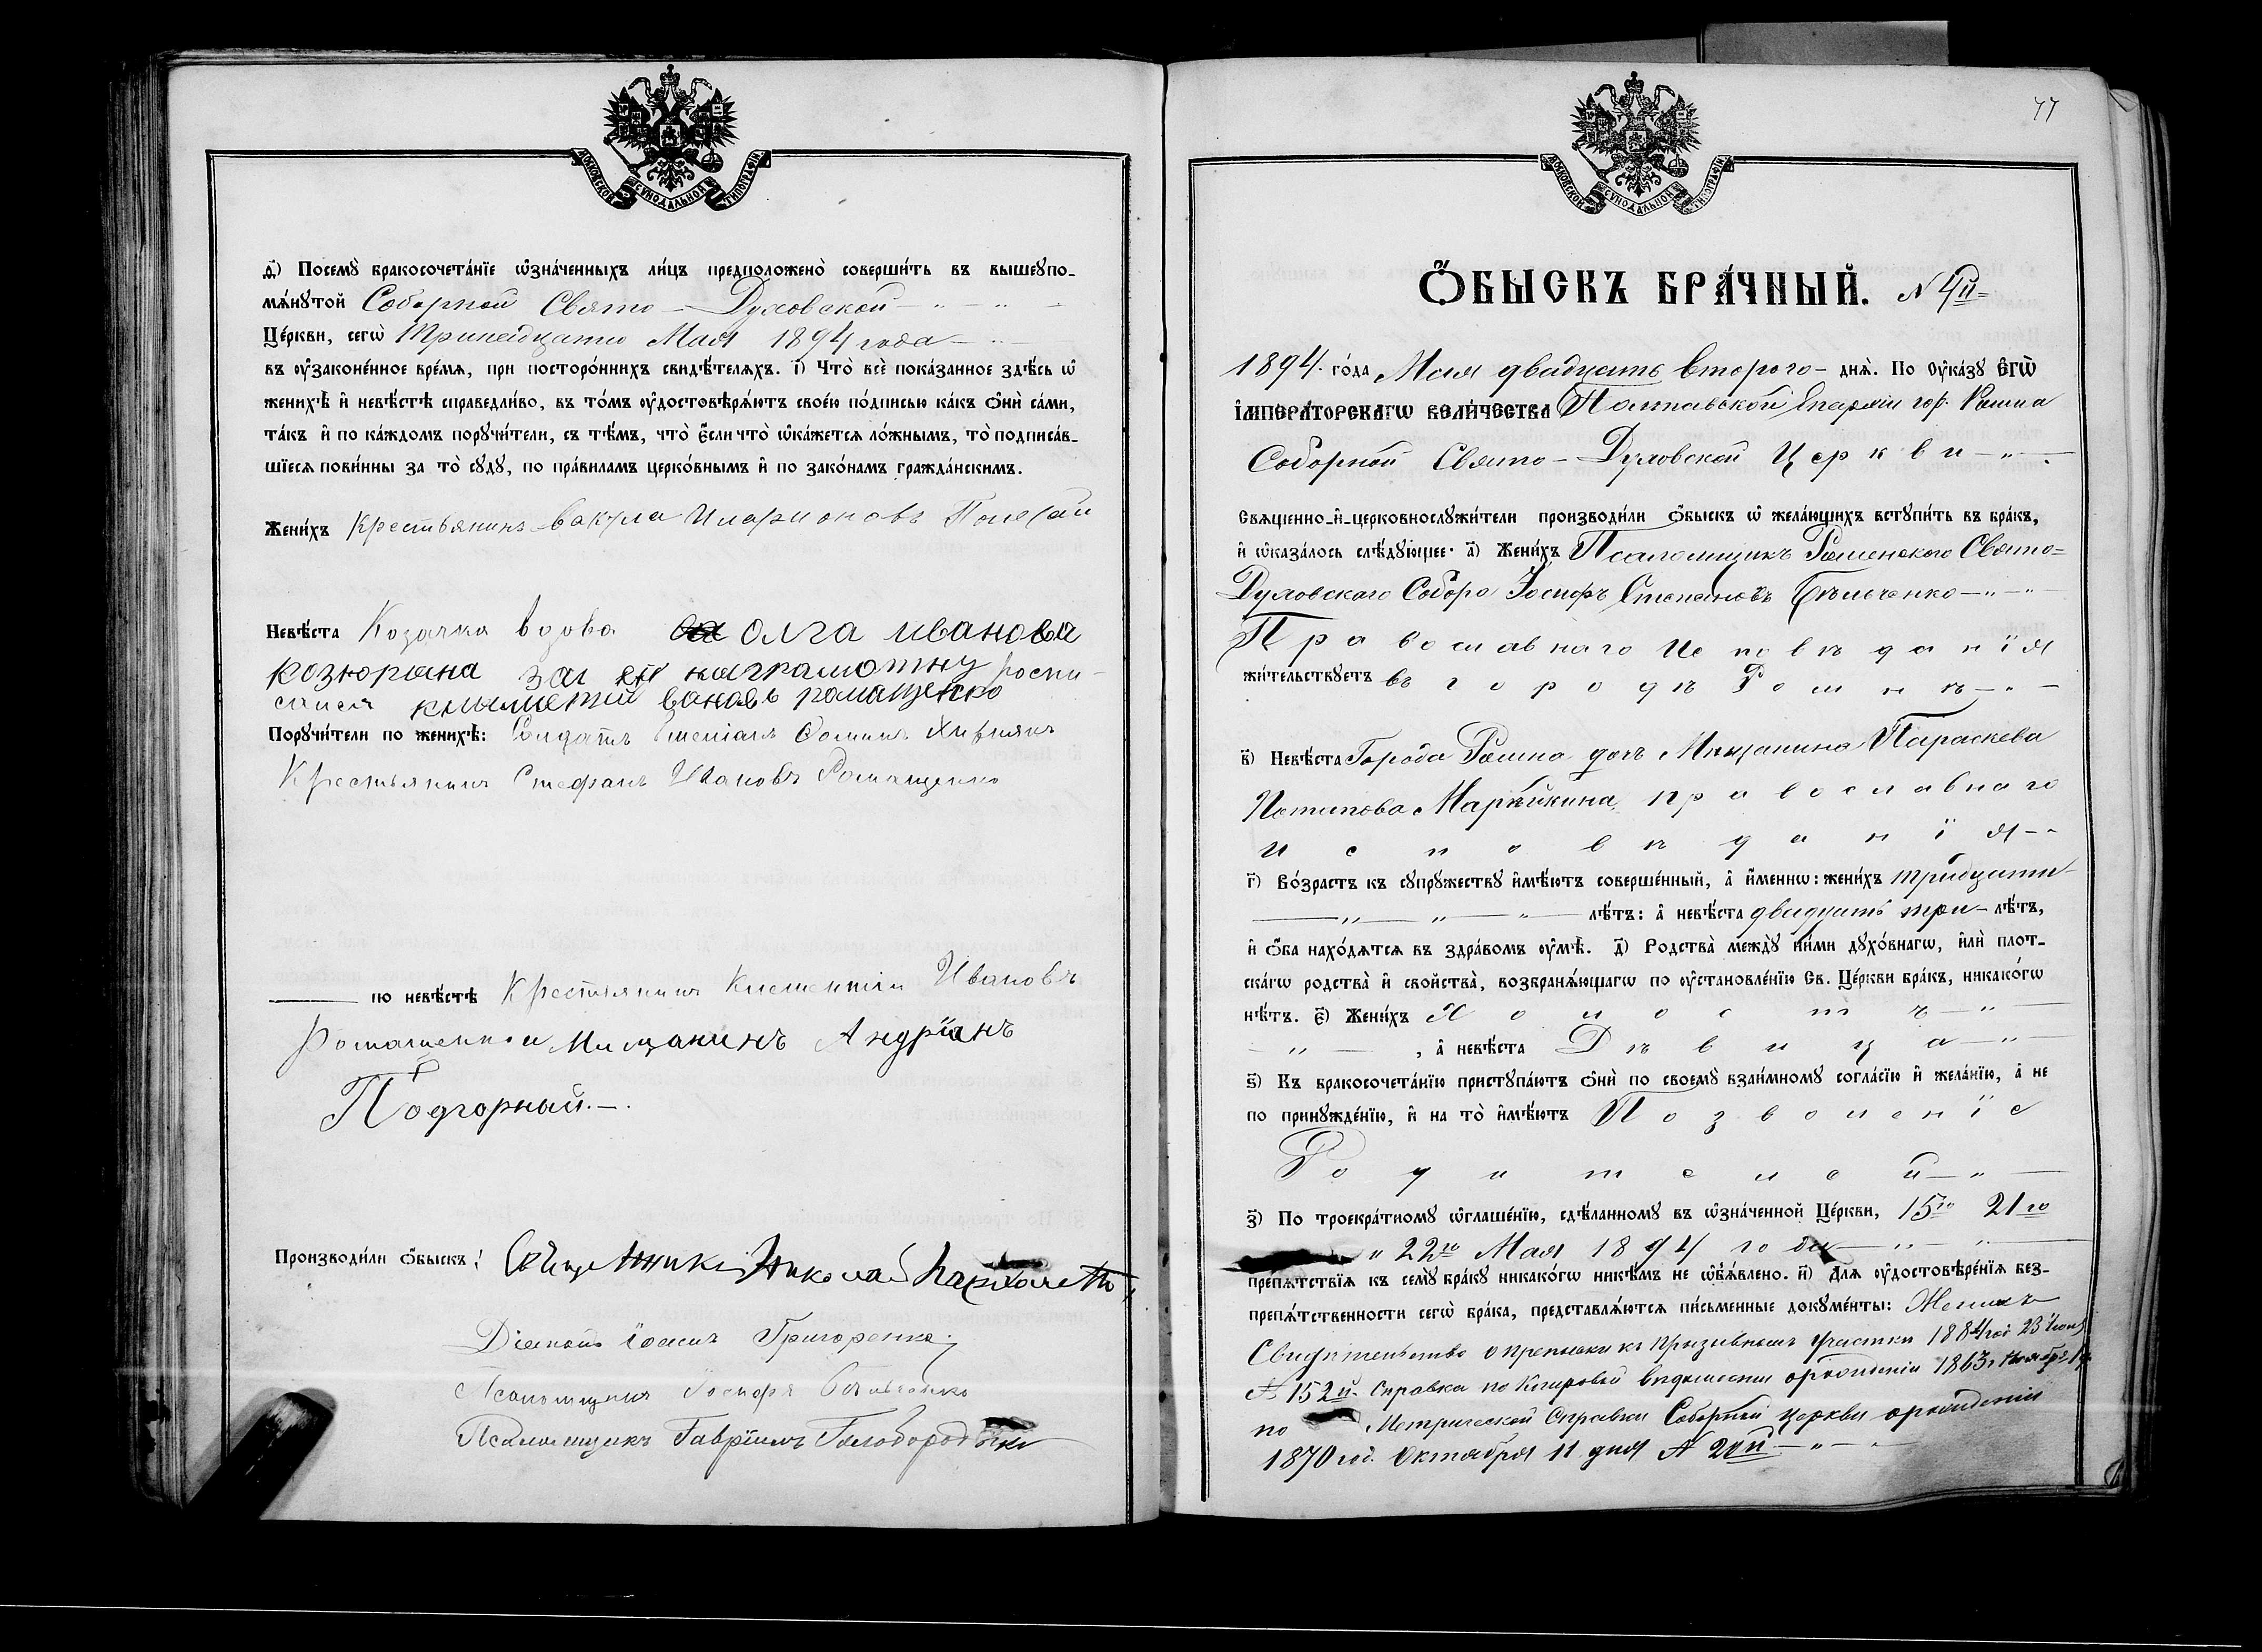 МОСКОВСКОЙ СѴНОДАЛЬНОЙ ТИПОГРАФІИ.
д҃і) Посемꙋ̀ бракосочета́нїе ѡ҆зна́ченныхъ ли́цъ предположено̀ соверши́ть въ вышеꙋпо-
мѧ́нꙋтой Соборной Свято-Духовской
Це́ркви, сегѡ̀ Тринадцатаго Мая 1894 года
въ ᲂу҆законе́нное вре́мѧ, при посторо́ннихъ свидѣ́телѧхъ. і҃) Что̀ всѐ пока́занное здѣ́сь ѡ҆
женихѣ̀ и҆ невѣ́стѣ справедли́во, въ то́мъ ᲂу҆достовѣрѧ́ютъ свое́ю по́дписью ка́къ ѻ҆нѝ са́ми,
та́къ и҆ по ка́ждомъ порꙋчи́тели, съ тѣ́мъ, что̀ є҆́сли что̀ ѡ҆ка́жетсѧ ло́жнымъ, то̀ подписа́в-
шїесѧ пови́нны за то̀ сꙋдꙋ̀, по пра́виламъ церко́внымъ и҆ по зако́намъ гражда́нскимъ.
Жени́хъ Крестьянинъ Вакула Иларионовъ
Невѣ́ста Козачка вдова Олга иванова
козюрина за неграмотну роспи-
сался климетий ивановъ ромащенко
Порꙋчи́тели по женихѣ̀: Солдатъ Фоминъ
Крестьянинъ Стефанъ Ивановъ Ромащенко
по невѣ́стѣ Крестьянинъ Климентій Ивановъ
Ромащенко и Мищанинъ Андріанъ
Подгорный.
Производи́ли ѻ҆́быскъ: Священникъ Николай
Діаконъ Іоаннъ Григоренко
Псаломщикъ Іосифъ Бѣльченко
Псаломщикъ Гавріилъ Голобородько
77
МОСКОВСКОЙ СѴНОДАЛЬНОЙ ТИПОГРАФІИ.
Ѻ҆́БЫСКЪ БРА́ЧНЫЙ. №
1894. го́да Мая двадцать второго днѧ̀. По ᲂу҆ка́зꙋ Є҆ГѠ̀
И҆МПЕРА́ТОРСКАГѠ ВЕЛИ́ЧЕСТВА Полтавской Епархіи гор. Ромна
Соборной Свято-Духовской Церкви
Свѧще́нно-и҆-церковнослꙋжи́тели производи́ли ѻ҆́быскъ ѡ҆ жела́ющихъ встꙋпи́ть въ бра́къ,
и҆ ѡ҆каза́лось слѣ́дꙋющее: а҃) Жени́хъ Псаломщикъ Роменского Свято-
Духовскаго Собора Іосифъ Степановъ Бѣльченко
Православнаго Исповѣданія
жи́тельствꙋетъ въ городѣ Ромнѣ
в҃) Невѣ́ста Города Ромна дочь Мѣщанина Параскева
Потапова Марѣйкина, православнаго
исповѣданія
г҃) Во́зрастъ къ сꙋпрꙋ́жествꙋ и҆мѣ́ютъ соверше́нный, а҆ и҆́меннѡ: жени́хъ тридцати
лѣ́тъ: а҆ невѣ́ста двадцать три лѣ́тъ,
и҆ ѻ҆́ба нахо́дѧтсѧ въ здра́вомъ ᲂу҆мѣ̀. д҃) Родства̀ междꙋ̀ ни́ми дꙋхо́внагѡ, и҆лѝ плот-
ска́гѡ родства̀ и҆ сво́йства, возбранѧ́ющагѡ по ᲂу҆становле́нїю Св. Це́ркви бра́къ, никако́гѡ
нѣ́тъ. є҃) Жени́хъ Холостъ
, а҆ невѣ́ста Дѣвица
ѕ҃) Къ бракосочета́нїю пристꙋпа́ютъ ѻ҆нѝ по своемꙋ̀ взаи́мномꙋ согла́сїю и҆ жела́нїю, а҆ не
по принꙋжде́нїю, и҆ на то̀ и҆мѣ́ютъ Позволеніе
Родителей
з҃) По троекра́тномꙋ ѡ҆глаше́нїю, сдѣ́ланномꙋ въ ѡ҆зна́ченной Це́ркви, 15го 21го
и 22го Мая 1894 года
препѧ́тствїѧ къ семꙋ̀ бра́кꙋ никако́гѡ никѣ́мъ не ѡ҆б̾ѧ́влено. и҃) Длѧ ᲂу҆достовѣре́нїѧ без-
препѧ́тственности сегѡ̀ бра́ка, представлѧ́ютсѧ пи́сьменные докꙋме́нты: Женихъ
Свидѣтельство о припискѣ къ Призывномъ участки 1884 год 23
№ 152й. Справка по Клировой вѣдомости о рожденіи 1863
по Метрической Справки Соборной церкви о рожденіи
1870 год. Октября 11 дня № 20й